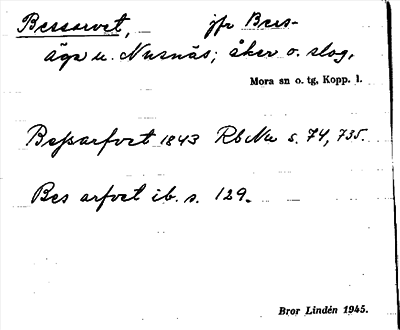 Bessarvet, jfr Bess-
äga u. Nusnäs; åker o. slog,
Mora sn o. tg, Kopp. l.
Beſsarfvet 1843 RbNu s. 74, 735.
Bes arfvet ib. s. 129.
Bror Lindén 1945.